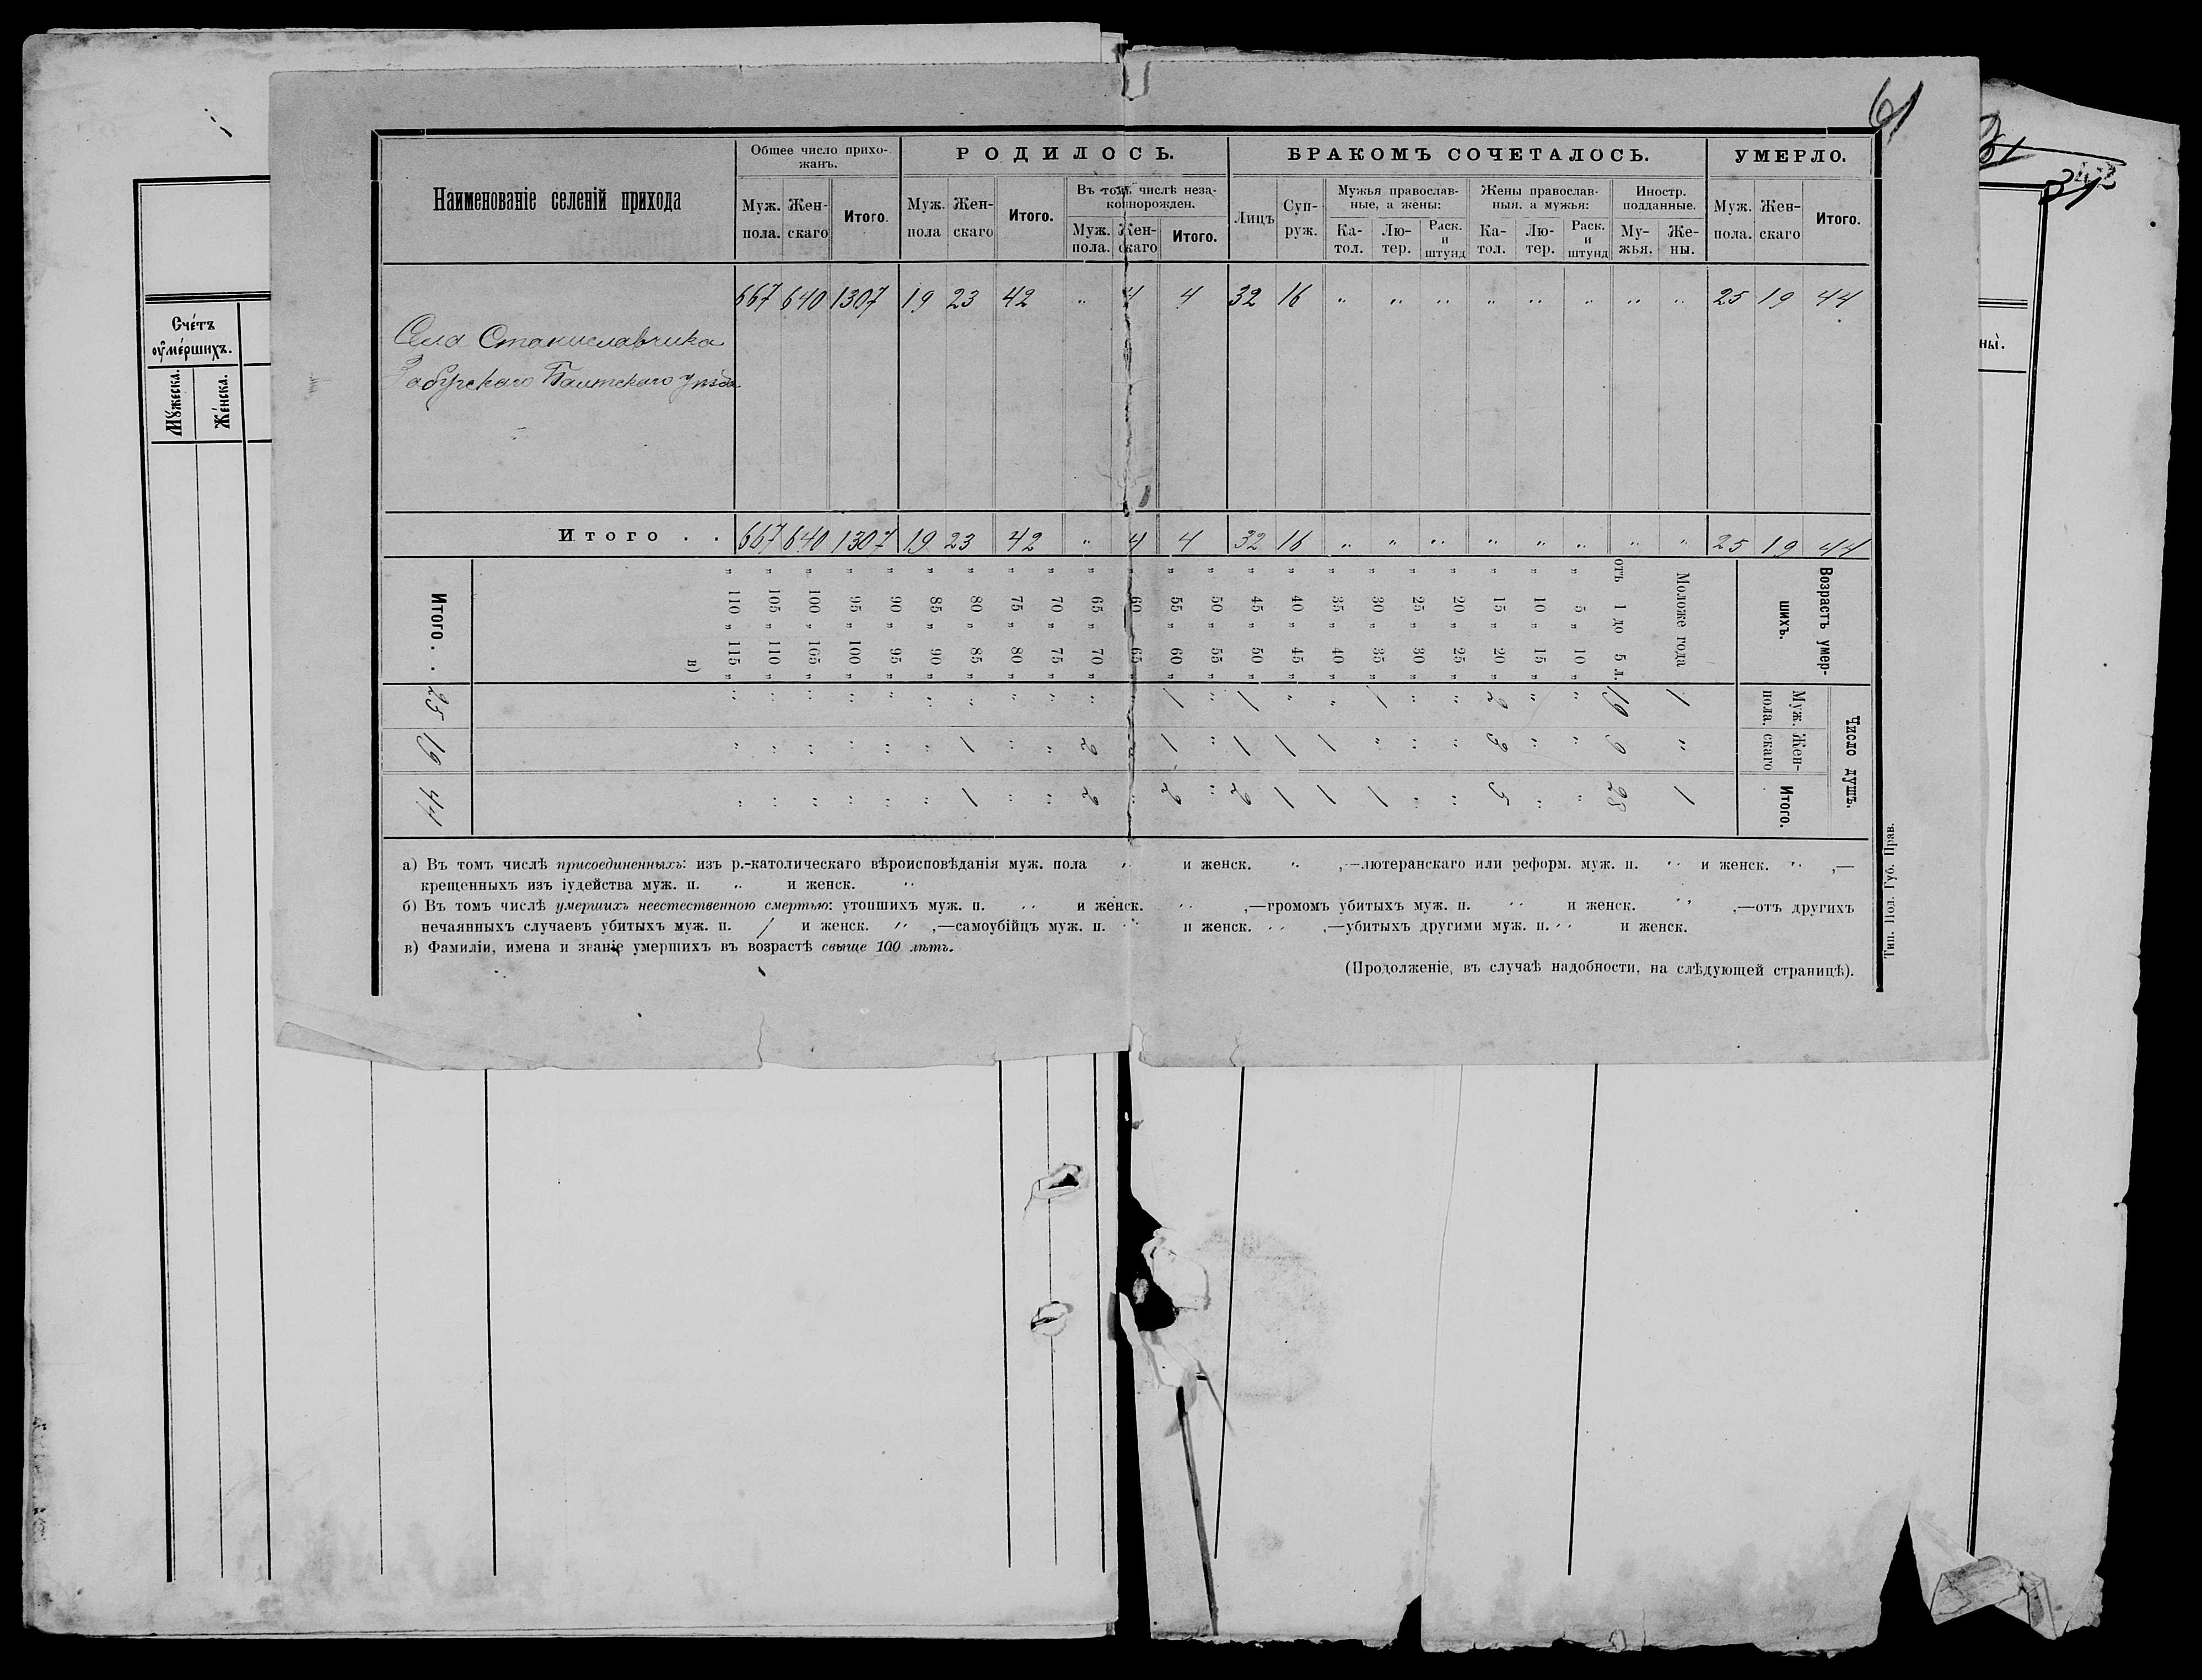 61
31
242
31
Счётъ
оумершихъ.
Мужеска.
Женска.
ны.
Наименованіе селеній прихода
Общее число прихо-
жанъ.
Муж. пола.
Жен- скаго
Итого.
РОДИЛОСЬ.
Муж. пола
Жен- скаго
Итого.
Въ томъ числѣ неза-
коннорожден.
Муж. пола.
Жен- скаго
Итого.
БРАКОМЪ СОЧЕТАЛОСЬ.
Лицъ
Суп- руж.
Мужья православ-
ные, а жены:
Ка- тол.
Лю- тер.
Раск. и штунд
Жены православ-
ныя. а мужья:
Ка- тол.
Лю- тер.
Раск. и штунд
Иностр.
подданные.
Му- жья.
Же- ны.
УМЕРЛО.
Муж. пола.
Жен- скаго
Итого.
667 640 1307 19 23 42 „ 4 4 32 16 „ „ „ „ „ „ „ „ 25 19 44
Села Станиславчика
Забугскаго Балтскаго уѣзда
Итого . . 667 640 1307 19 23 42 „ 4 4 32 16 „ „ „ „ „ „ „ „ 25 19 44
Возрастъ умер-
шихъ.
Число душъ.
Муж. пола.
Жен- скаго
Итого.
Моложе года 1 „ 1
отъ 1 до 5 л. 19 9 28
„ 5 „ 10 „ „ „ „
„ 10 „ 15 „ „ „ „
„ 15 „ 20 „ 2 3 5
„ 20 „ 25 „ „ „ „
„ 25 „ 30 „ „ „ „
„ 30 „ 35 „ 1 „ 1
„ 35 „ 40 „ „ 1 1
„ 40 „ 45 „ „ 1 1
„ 45 „ 50 „ 1 1 2
„ 50 „ 55 „ „ „ „
„ 55 „ 60 „ 1 1 2
„ 60 „ 65 „
„ 65 „ 70 „ „ 2 2
„ 70 „ 75 „ „ „ „
„ 75 „ 80 „ „ „ „
„ 80 „ 85 „ „ 1 1
„ 85 „ 90 „ „ „ „
„ 90 „ 95 „ „ „ „
„ 95 „ 100 „ „ „ „
„ 100 „ 105 „ „ „ „
„ 105 „ 110 „ „ „ „
„ 110 „ 115 „ „ „ „
в)
Итого . . 25 19 44
а) Въ томъ числѣ присоединенныхъ: изъ р.-католическаго вѣроисповѣданія муж. пола „ и женск. „ ,—лютеранскаго или реформ. муж. п. „ и женск. „ ,—
крещенныхъ изъ іудейства муж. п. „ и женск. „
б) Въ томъ числѣ умершихъ неестественною смертью: утопшихъ муж. п. „ и женск. „ ,—громомъ убитыхъ муж. п. „ и женск. „ ,—отъ другихъ
нечаянныхъ случаевъ убитыхъ муж. п. 1 и женск. „ ,—самоубійцъ муж. п. „ и женск. „ ,—убитыхъ другими муж. п. „ и женск.
в) Фамиліи, имена и званіе умершихъ въ возрастѣ свыше 100 лѣтъ.
(Продолженіе, въ случаѣ надобности, на слѣдующей страницѣ).
Тип. Под. Губ. Прав.